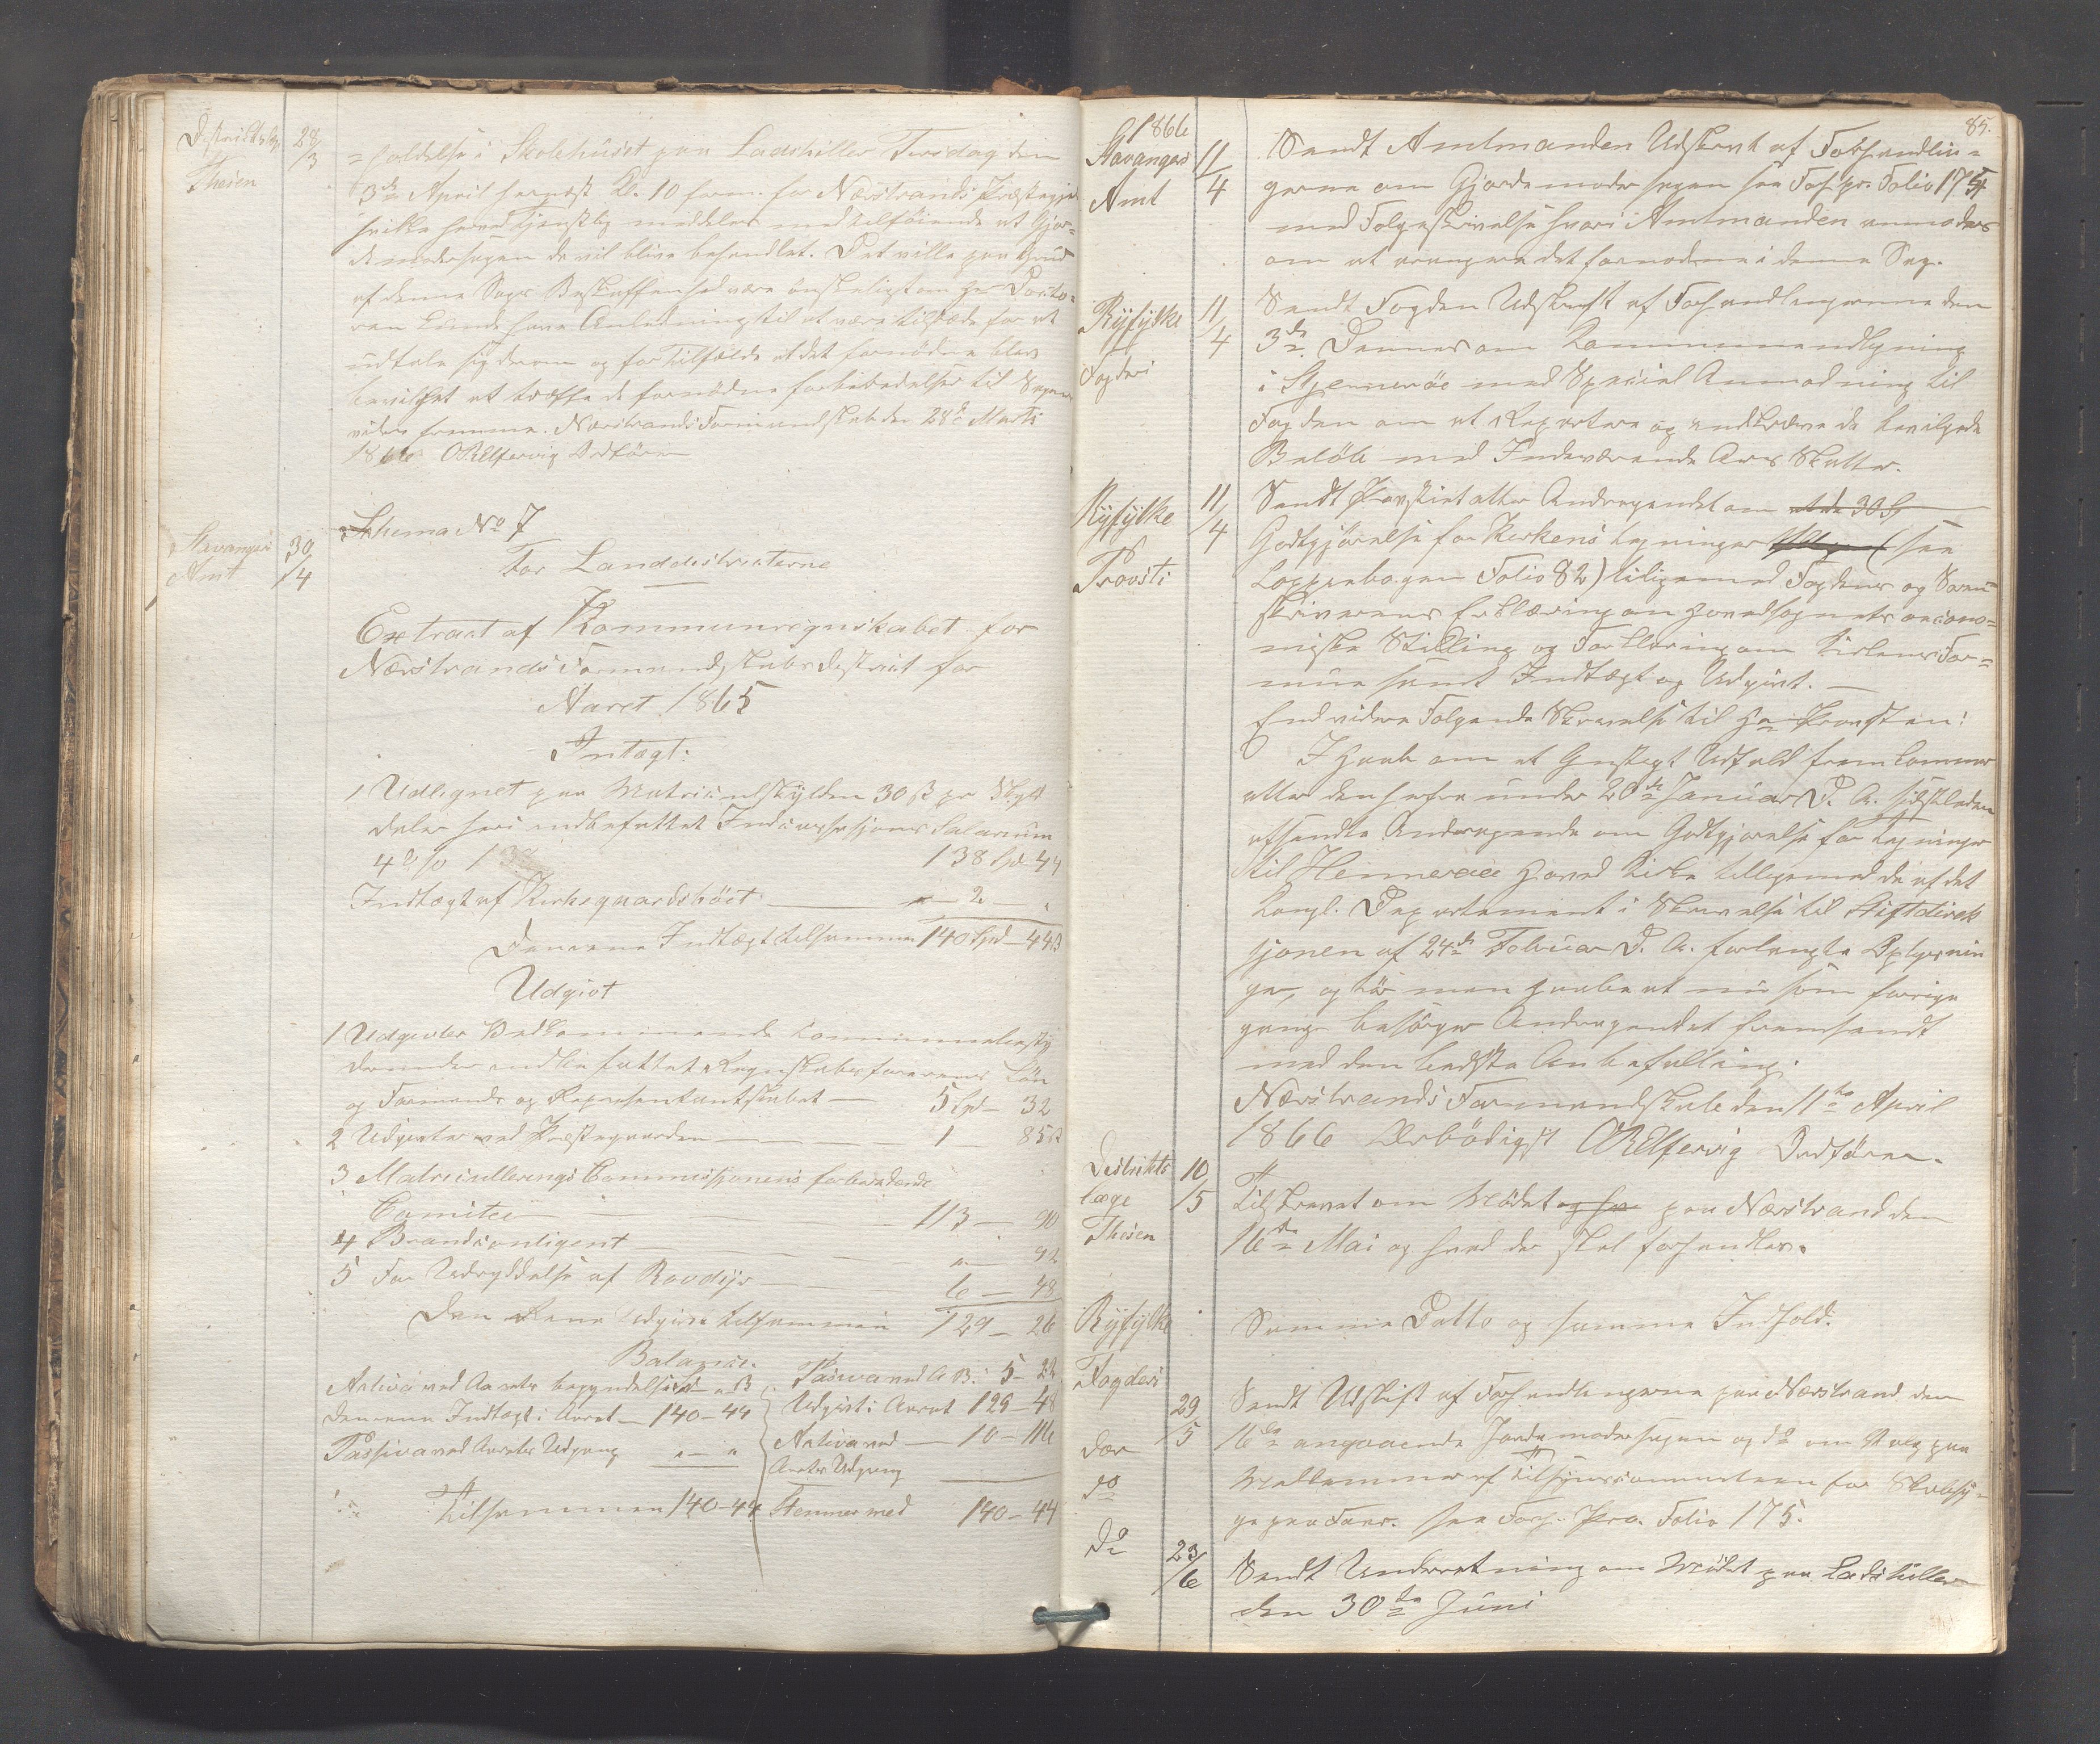 Distriktslæge
Thesen
28/3
=holdelse i Skolehuset paa Ladshiller Tirsdag den
3de April førnæst Kl. 10 form. for Nærstrands Præstegj
hvilke herved tjenstlig meddeles med tilføiende at Gjor=
demodersagen da vil blive behandlet. Det ville paa Grund
af denne Sags Beskaffenhed være ønskeligt om Hr Docto=
ren kunde have Anledning til at være tilstæde for at
udtale sig derom og for Tilfælde at det fornødne blev
bevilget at træffe de fornødne forberedelser til Sagens
videre fremme. Nærstrands Formandskab den 28de Marts
1866 Ordfører
Stavanger
Amt
30/4
Schema No 7
For Landdistricterne
Extract af Kommuneregnskabet for
Nærstrands Formandskabsdistrict for
Aaret 1865
Intægt:
1 Udlignet paa Matriculskylden 30 ß pr Skyld
daler heri indbefattet Salarium
4 % 138 Spd 44
Indtægt af Kirkegaardshöet — " — 2 — "
Den rene Indtægt tilsammen 140 Spd — 44 ß
Udgivt
1 Udgivter Vedkommende Kommunebestÿ
derunder indbefattet Regnskabsførerens Løn
og Formands og Repræsentantskabet — 5 Spd — 32
2 Udgivter ved Præstegaarden — 1 85 ß
3 Matricullerings Commissjonens forberedende
Comitee — 113 — 90
4 Brandcontigent — " — 92
5 For Udryddelse af Rovdÿr — 6 — 48
Den Rene Udgivt tilsammen 129 — 26
Balance.
Activa ved Aarets begyndelse Spd " ß Passiva ved A. B. 5 — 22
Den rene Indtægt i Aaret — 140 — 44 Udgivt i Aaret 129 — 48
Passiva ved Aarets Udgang " — " Activa ved — 10 — 116
Aarets Udgang
Tilsammen 140 — 44 Stemmer med 140 — 44
85.
1866
Stavangers
Amt
11/4
Sendt Amtmanden Udskrivt af Forhandlin=
gerne om Gjordemodersagen see Forh. pr. Folio 174
med Følgeskrivelse hvori Amtmanden anmodes
om at arrangere det fornødne i denne Sag.
Rÿfÿlke
Fogderi
11/4
Sendt Fogden Udskrift af Forhandlingerne den
3de Dennes om Kommuneudligning
i Stjernerøe med Special Anmodning til
Fogden om at Repartere og indkræve de bevilgede
Beløb med Indeværende Aars Skatter.
Rÿfÿlke
Provsti
11/4
Sendt Provstiet atter Andragendet om
Godtgjörelse for Kirkens bygninger (see
Koppiebogen Folio 82) tiligemed Fogdens og Soren
skriverens Erklæring om Hovedsognets oecono=
miske Stilling og Forklaring om Kirkens For=
mue samt Indtægt og Udgivt. —
Endvidere Følgende Skrivelse til Hr Provsten:
I Haab om et Gunstigt Udfald fremkommer
atter den herfra under 20de Januar D. A.
afsendte Andragende om Godtgjørelse for bygninger
til Hinnerøe Hoved Kirke tilligemed de af det
Kongl. Departement i Skrivelse til Stiftdirek
sjonen af 24de Februar D. A. forlangte Oplysnin
ger, og tör man Haabe at nu som forrige
gang besörger Andragendet fremsendt
med den bedste Anbefalling.
Nærstrands Formandskab den 11te April
1866 Ærbödigst Ordförer.
Destrikts
læge
Thesen
10/5
Tilskrevet om Mödet paa Nærstrand den
16de Mai og hvad der skal forhandles.
Rÿfÿlke
Fogderi
Samme Datto og samme Indhold.
Der
do
29/5
Sendt Udskrift af Forhandlingerne paa Nærstrand den
16de angaaende Jordemodersagen og do om Valg paa
Medlemmer af Tilsÿnscommiteen for Skabsÿ=
ge paa Faar. see Forh. Pro. Folio 175.
do
23/6
Sendt Underretning om Mödet paa Ladshiller
den 30te Juni